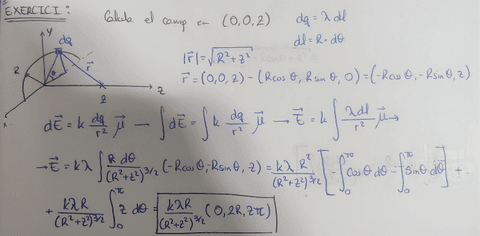 EXERCICI: Calcula el camp en (0,0,z) dq = λ dl
dl = R · dθ
y dq
|r⃗| = √(R²+z²)
R θ r⃗
r⃗ = (0,0,z) - (Rcosθ, Rsinθ, 0) = (-Rcosθ, -Rsinθ, z)
x z z
dE⃗ = k dq/r² μ⃗ → ∫dE⃗ = ∫k dq/r² μ⃗ → E⃗ = k ∫ λdl/r² μ⃗ →
→ E⃗ = kλ ∫ R dθ/(R²+z²)^3/2 (-Rcosθ, -Rsinθ, z) = kλ R²/(R²+z²)^3/2 [-∫₀^π cosθ dθ - ∫₀^π sinθ dθ] +
+ kλR/(R²+z²)^3/2 ∫₀^π z dθ = kλR/(R²+z²)^3/2 (0, 2R, zπ)